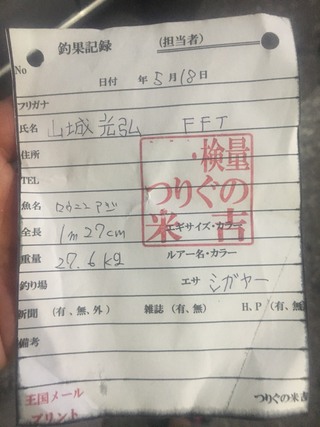 釣果記録 (担当者)
No
日付 年5月18日
フリガナ
氏名 山城光弘 FFT
住所
TEL
検量
つりぐの
米吉
魚名 ロウニンアジ
全長 1m27cm エギサイズ・カラー
重量 27.6kg ルアー名・カラー
釣り場 エサ シガヤー
新聞 (有、無、外) 雑誌 (有、無) H.P (有、無
備考
王国メール つりぐの米吉
プリント